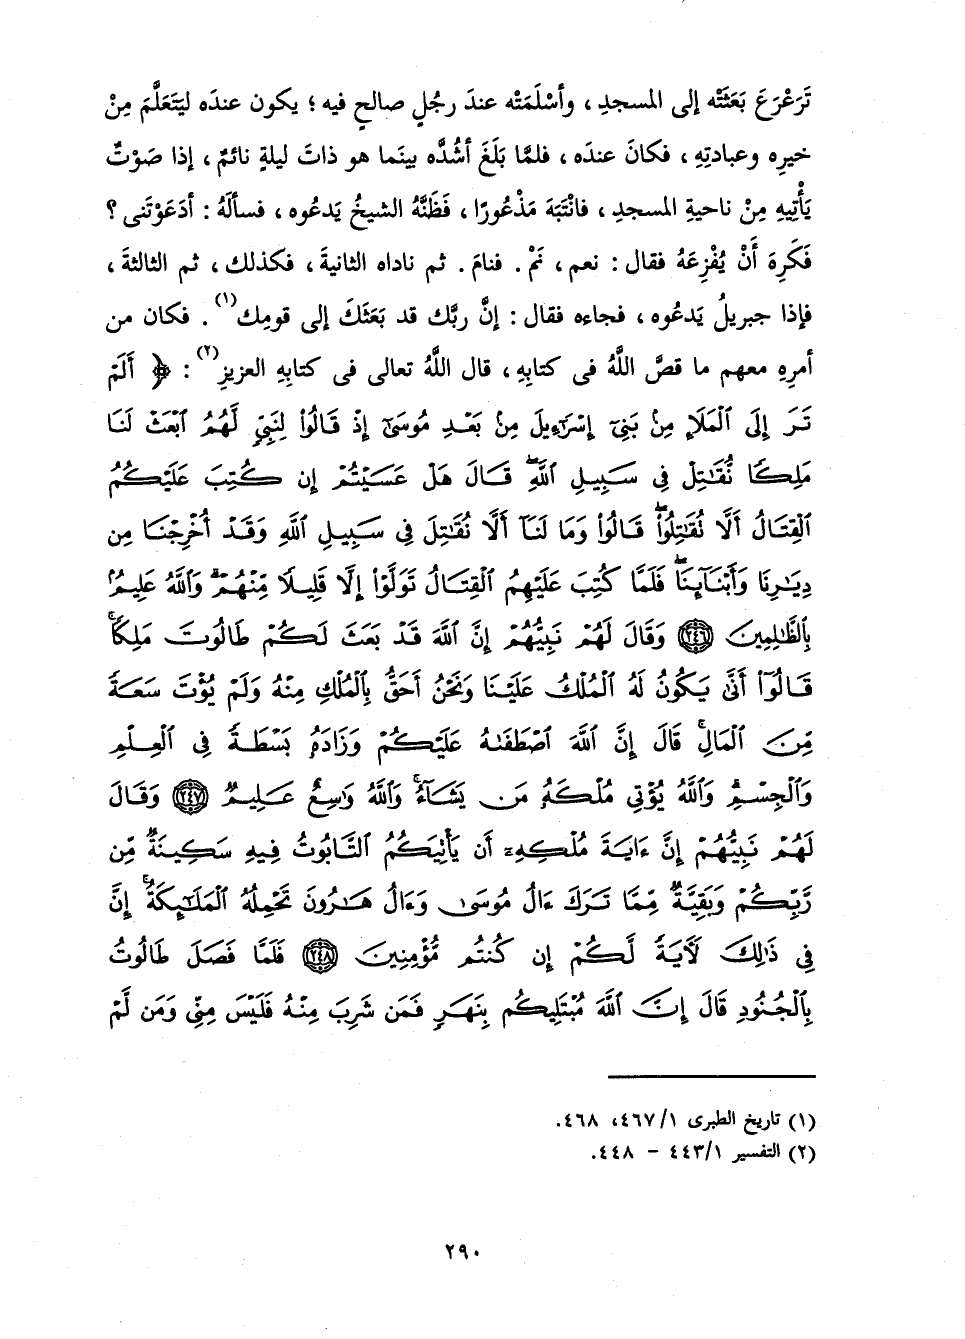 تَرَعْرَعَ بَعَثَتْه إلى المسجدِ ، وأسْلَمَتْه عندَ رجُلٍ صالحٍ فيه ؛ يكون عندَه ليَتَعَلَّمَ مِنْ
خيرِه وعبادتِهِ ، فكانَ عندَه ، فلمَّا بَلَغَ أشُدَّه بينَما هو ذاتَ ليلةٍ نائمٌ ، إذا صَوْتٌ
يَأْتِيهِ مِنْ ناحيةِ المسجدِ ، فانْتَبَهَ مَذْعُورًا ، فَظَنَّهُ الشيخُ يَدعُوه ، فسألَهُ : أدَعَوْتَنى ؟
فَكَرِهَ أَنْ يُفْزِعَهُ فقال : نعم ، نَمْ . فنامَ . ثم ناداه الثانيةَ ، فكذلك ، ثم الثالثةَ ،
فإذا جبريلُ يَدعُوه ، فجاءه فقال : إنَّ ربَّك قد بَعَثَكَ إلى قومِك(١) . فكان من
أمرِهِ معهم ما قصَّ اللَّهُ فى كتابِهِ ، قال اللَّهُ تعالى فى كتابِهِ العزيزِ(٢) : ﴿ أَلَمْ
تَرَ إِلَى ٱلْمَلَإِ مِنْ بَنِىٓ إِسْرَٰٓءِيلَ مِنْ بَعْدِ مُوسَىٰٓ إِذْ قَالُوا۟ لِنَبِىٍّ لَّهُمُ ٱبْعَثْ لَنَا
مَلِكًا نُّقَٰتِلْ فِى سَبِيلِ ٱللَّهِ ۖ قَالَ هَلْ عَسَيْتُمْ إِن كُتِبَ عَلَيْكُمُ
ٱلْقِتَالُ أَلَّا نُقَٰتِلُوا۟ ۖ قَالُوا۟ وَمَا لَنَآ أَلَّا نُقَٰتِلَ فِى سَبِيلِ ٱللَّهِ وَقَدْ أُخْرِجْنَا مِن
دِيَٰرِنَا وَأَبْنَآئِنَا ۖ فَلَمَّا كُتِبَ عَلَيْهِمُ ٱلْقِتَالُ تَوَلَّوْا۟ إِلَّا قَلِيلًا مِّنْهُمْ ۗ وَٱللَّهُ عَلِيمٌۢ
بِٱلظَّٰلِمِينَ ٢٤٦ وَقَالَ لَهُمْ نَبِيُّهُمْ إِنَّ ٱللَّهَ قَدْ بَعَثَ لَكُمْ طَالُوتَ مَلِكًا ۚ
قَالُوٓا۟ أَنَّىٰ يَكُونُ لَهُ ٱلْمُلْكُ عَلَيْنَا وَنَحْنُ أَحَقُّ بِٱلْمُلْكِ مِنْهُ وَلَمْ يُؤْتَ سَعَةً
مِّنَ ٱلْمَالِ ۚ قَالَ إِنَّ ٱللَّهَ ٱصْطَفَىٰهُ عَلَيْكُمْ وَزَادَهُۥ بَسْطَةً فِى ٱلْعِلْمِ
وَٱلْجِسْمِ ۖ وَٱللَّهُ يُؤْتِى مُلْكَهُۥ مَن يَشَآءُ ۚ وَٱللَّهُ وَٰسِعٌ عَلِيمٌ ٢٤٧ وَقَالَ
لَهُمْ نَبِيُّهُمْ إِنَّ ءَايَةَ مُلْكِهِۦٓ أَن يَأْتِيَكُمُ ٱلتَّابُوتُ فِيهِ سَكِينَةٌ مِّن
رَّبِّكُمْ وَبَقِيَّةٌ مِّمَّا تَرَكَ ءَالُ مُوسَىٰ وَءَالُ هَٰرُونَ تَحْمِلُهُ ٱلْمَلَٰٓئِكَةُ ۚ إِنَّ
فِى ذَٰلِكَ لَءَايَةً لَّكُمْ إِن كُنتُم مُّؤْمِنِينَ ٢٤٨ فَلَمَّا فَصَلَ طَالُوتُ
بِٱلْجُنُودِ قَالَ إِنَّ ٱللَّهَ مُبْتَلِيكُم بِنَهَرٍ فَمَن شَرِبَ مِنْهُ فَلَيْسَ مِنِّى وَمَن لَّمْ
(١) تاريخ الطبرى ٤٦٧/١، ٤٦٨.
(٢) التفسير ٤٤٣/١ - ٤٤٨.
٢٩٠